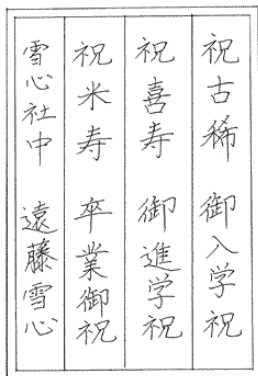 祝古稀 御入学祝
祝喜寿 御進学祝
祝米寿 卒業御祝
雪心社中 遠藤雪心